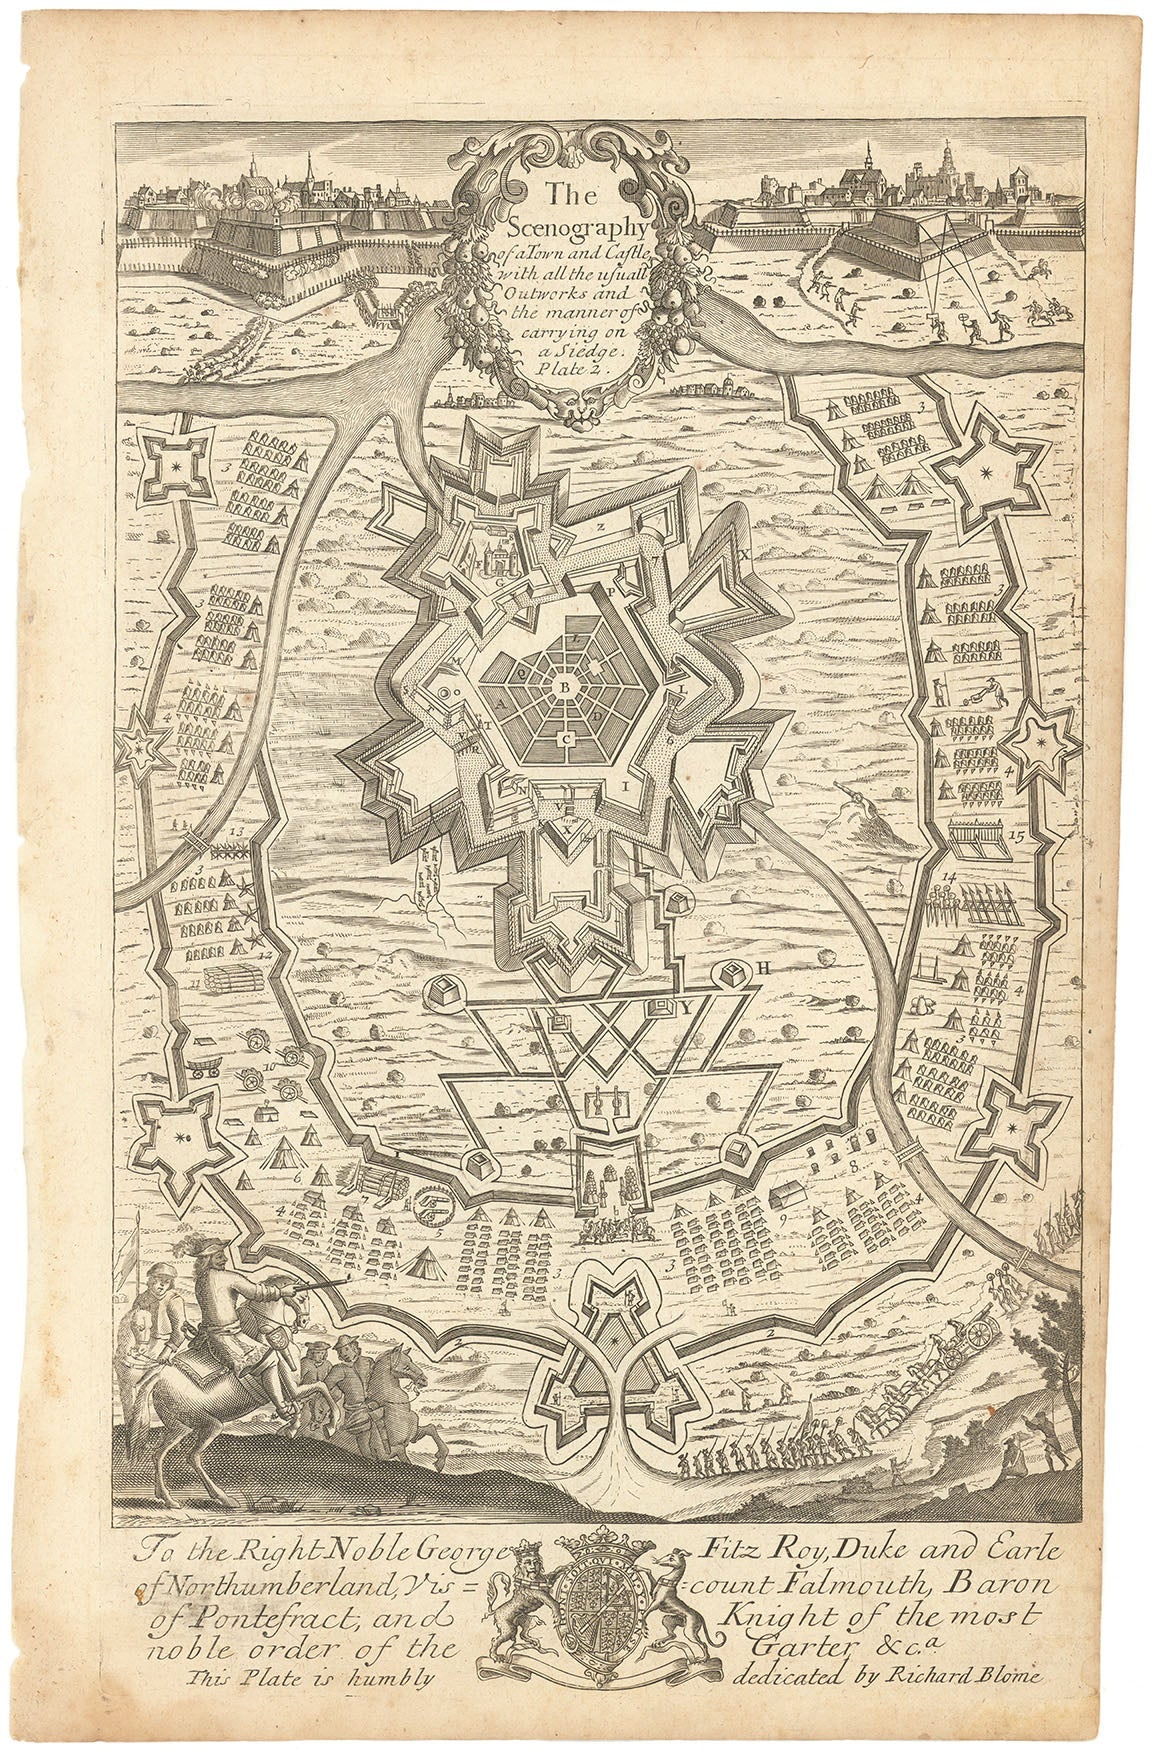 The
Scenography
of a Town and Castle
with all the usuall
Outworks and
the manner of
carrying on
a Siedge.
Plate 2.
3
3
3
3
4
4
13
3
12
11
10
Z
X
P
G
L
M
Q
B
A
D
L
C
S
T
R
N
I
V
X
15
14
4
3
H
Y
1
6
7
8
4
5
9
4
3
3
2
2
To the Right Noble George Fitz Roy, Duke and Earle
of Northumberland, Vis= =count Falmouth, Baron
of Pontefract, and Knight of the most
noble order of the Garter, &c.a
This Plate is humbly dedicated by Richard Blome
HONI SOIT QUI MAL Y